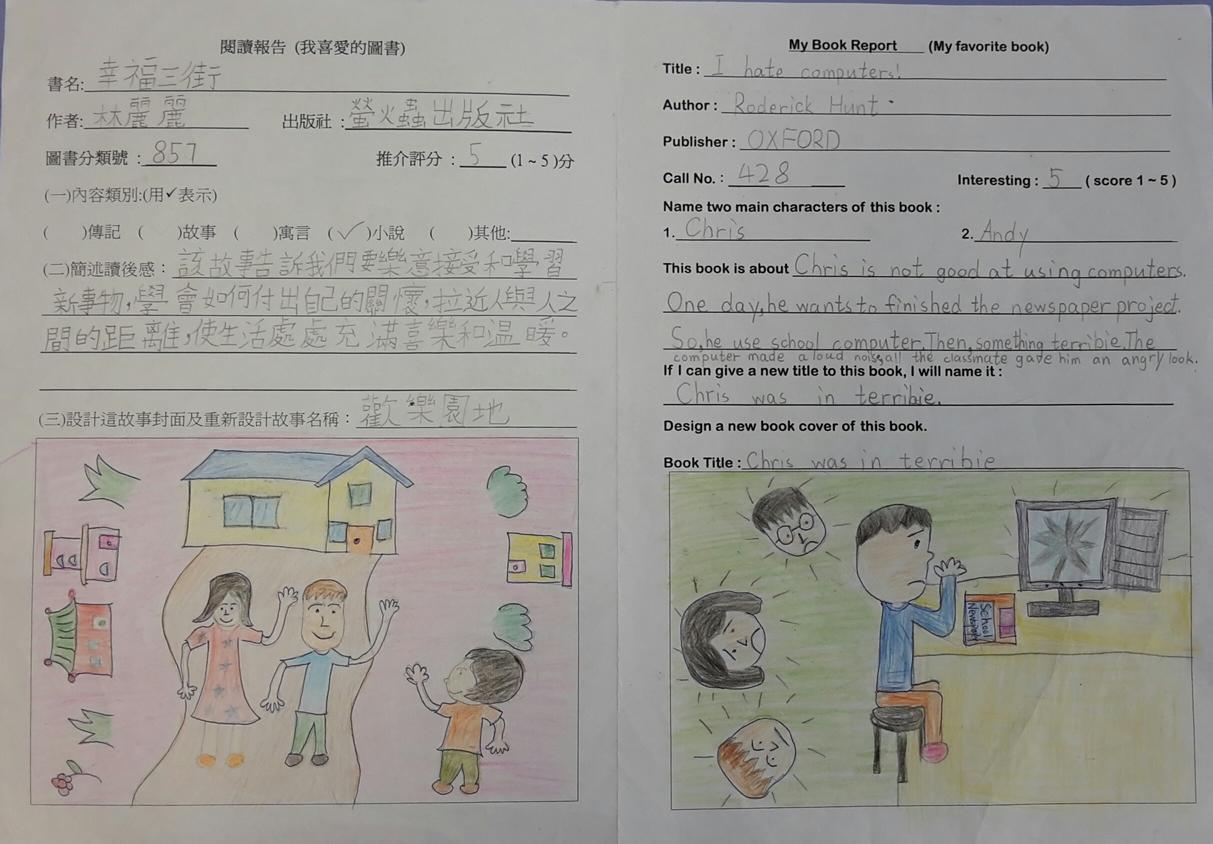 閱讀報告 (我喜愛的圖書)
書名: 幸福三街
作者: 林麗麗 出版社 : 螢火蟲出版社
圖書分類號 : 857 推介評分 : 5 (1 ~ 5 )分
(一)內容類別:(用✓表示)
( )傳記 ( )故事 ( )寓言 (✓)小說 ( )其他:
(二)簡述讀後感 : 該故事告訴我們要樂意接受和學習
新事物,學會如何付出自己的關懷,拉近人與人之
間的距離,使生活處處充滿喜樂和溫暖。
(三)設計這故事封面及重新設計故事名稱 : 歡樂園地
My Book Report (My favorite book)
Title : I hate computers!
Author : Roderick Hunt
Publisher : OXFORD
Call No. : 428 Interesting : 5 ( score 1 ~ 5 )
Name two main characters of this book :
1. Chris 2. Andy
This book is about Chris is not good at using computers.
One day,he wants to finished the newspaper project.
So,he use school computer.Then,something terribie.The
computer made a loud noise,all the classmate gave him an angry look.
If I can give a new title to this book, I will name it :
Chris was in terribie.
Design a new book cover of this book.
Book Title : Chris was in terribie
School
Newspaper